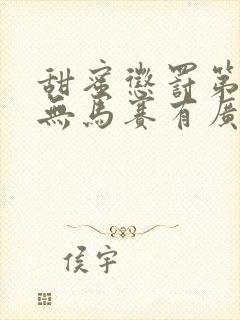 甜蜜懲罰第
無馬賽有廣
侯宇